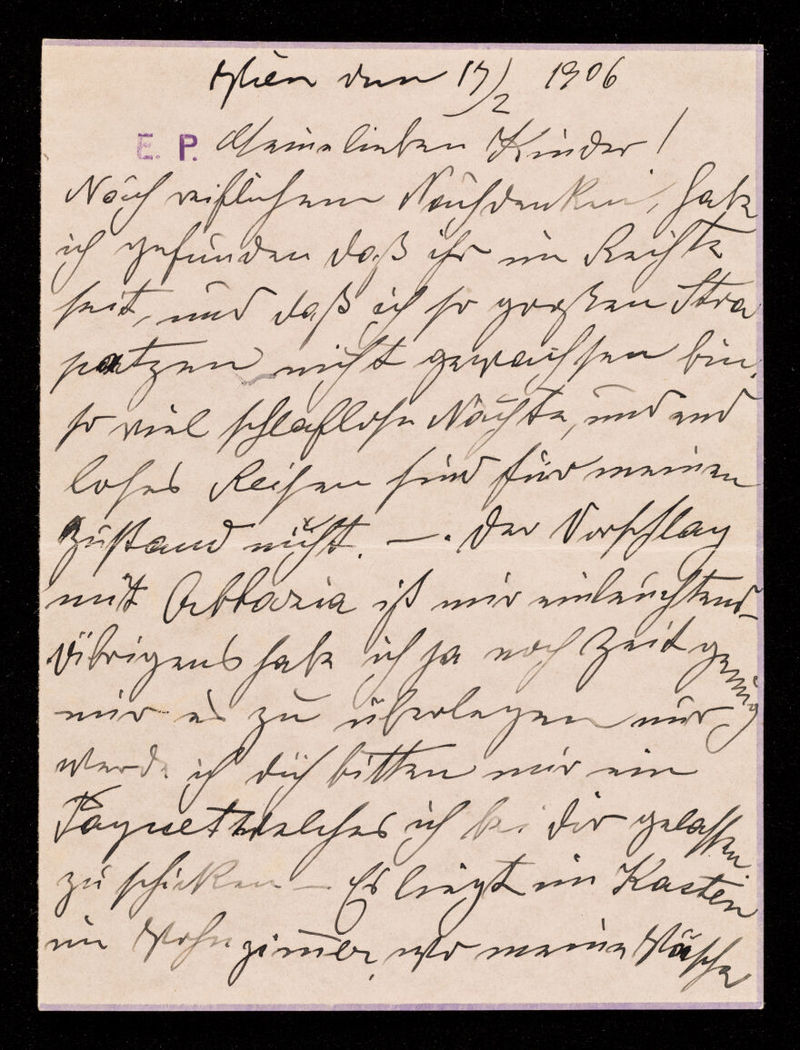 Wien den 17/2 1906
E. P. Meine lieben Kinder!
Nach reiflichem Nachdenken, habe
ich gefunden daß ihr im Rechte
seit, und daß ich so großen Stra
patzen nicht gewachsen bin,
so viel schlaflose Nächte, und end
loses Reisen sind für meinen
Zustand nicht. —. Der Vorschlag
mit Abbazia ist mir einleuchtend
Übrigens habe ich ja noch Zeit genug
mir es zu überlegen nur
werde ich dich bitten mir ein
Paquet welches ich bei dir gelassen
zu schicken — Es liegt im Kasten
im Wohnzimmer, wo meine Wäsche